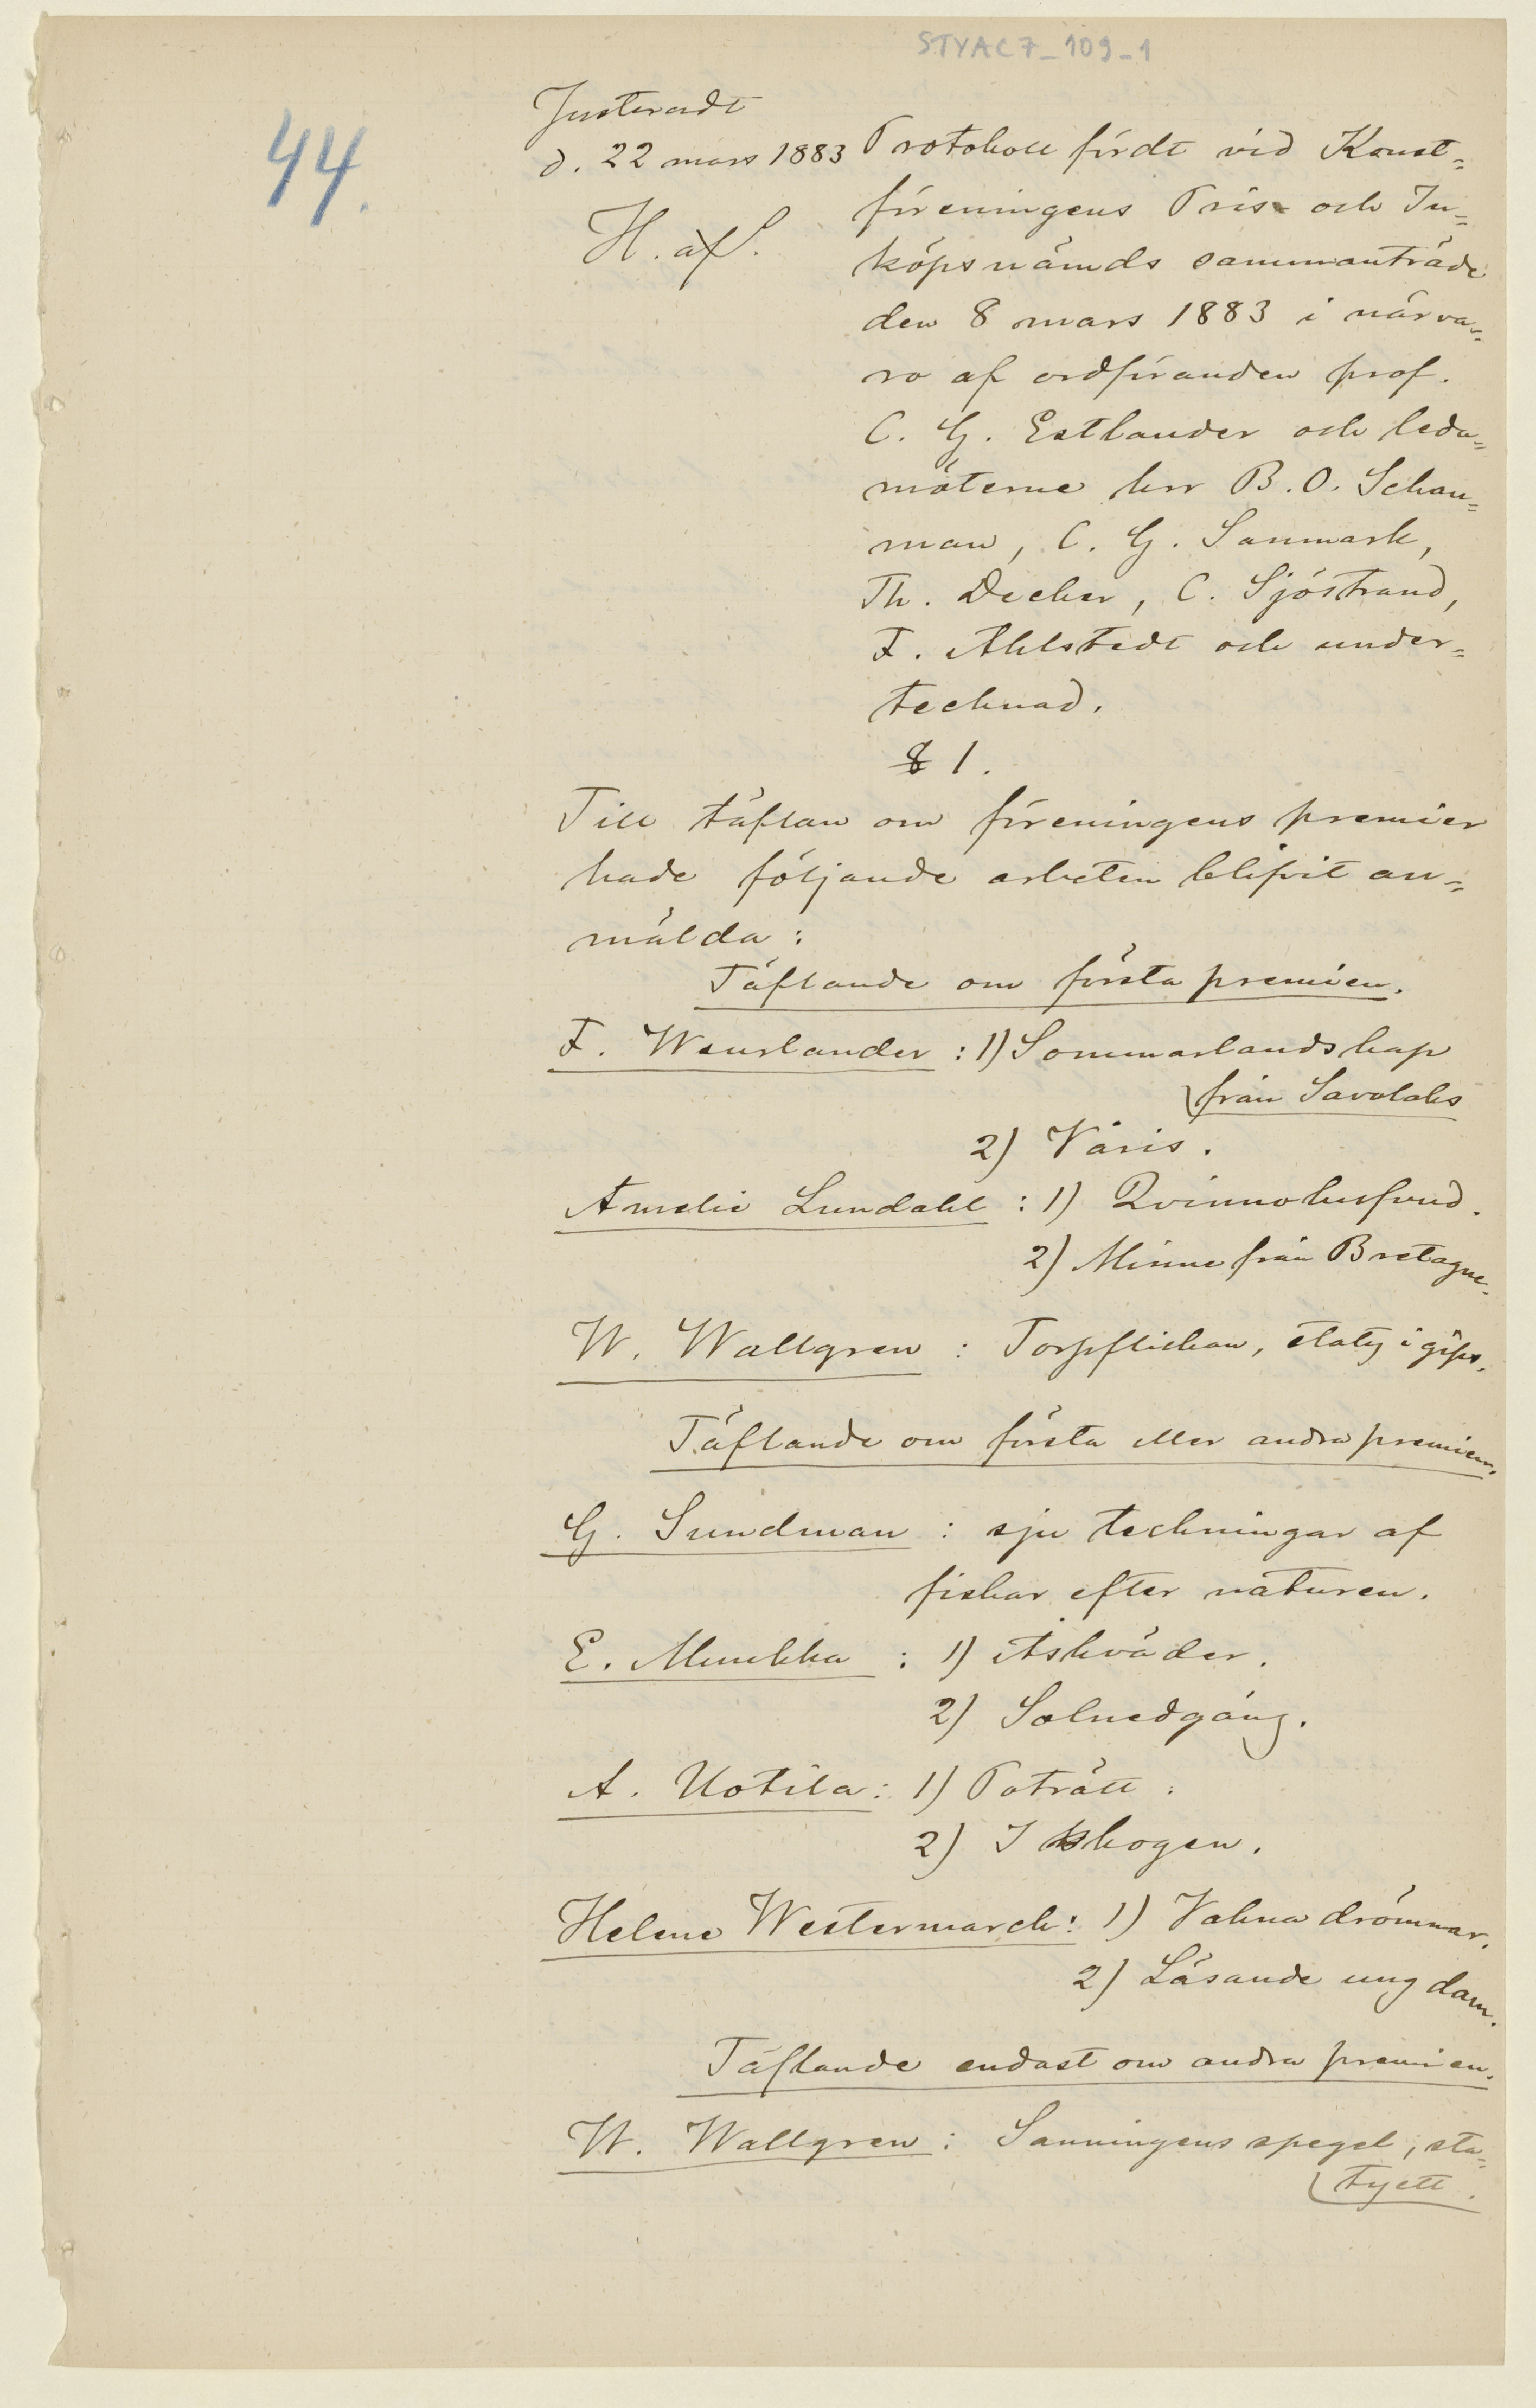 STYAC7_109_1
44.
Justeradt
d. 22 mars 1883
H. af S.
Protokoll fördt vid Konst-
föreningens Pris- och In-
köpsnämds sammanträde
den 8 mars 1883 i närva-
ro af ordföranden prof.
C. G. Estlander och leda-
möterne hrr B. O. Schau-
man, C. G. Sanmark,
Th. Decker, C. Sjöstrand,
F. Ahlstedt och under-
tecknad.
§ 1.
Till täflan om föreningens premier
hade följande arbeten blifvit an-
mälda:
Täflande om första premien.
F. Wenrlander : 1) Sommarlandskap
från Savolaks
2) Våris.
Amelie Lundahl : 1) Qvinnohufvud.
2) Minne från Bretagne.
W. Wallgren : Torpflickan, staty i gips.
Täflande om första eller andra premien.
G. Sundman : sju teckningar af
fiskar efter naturen.
E. Muukka : 1) Åskväder.
2) Solnedgång.
A. Uotila : 1) Poträtt.
2) I skogen.
Helene Westermarck : 1) Vakna drömmar.
2) Läsande ung dam.
Täflande endast om andra premien.
W. Wallgren : Sanningens spegel, sta-
tyett.